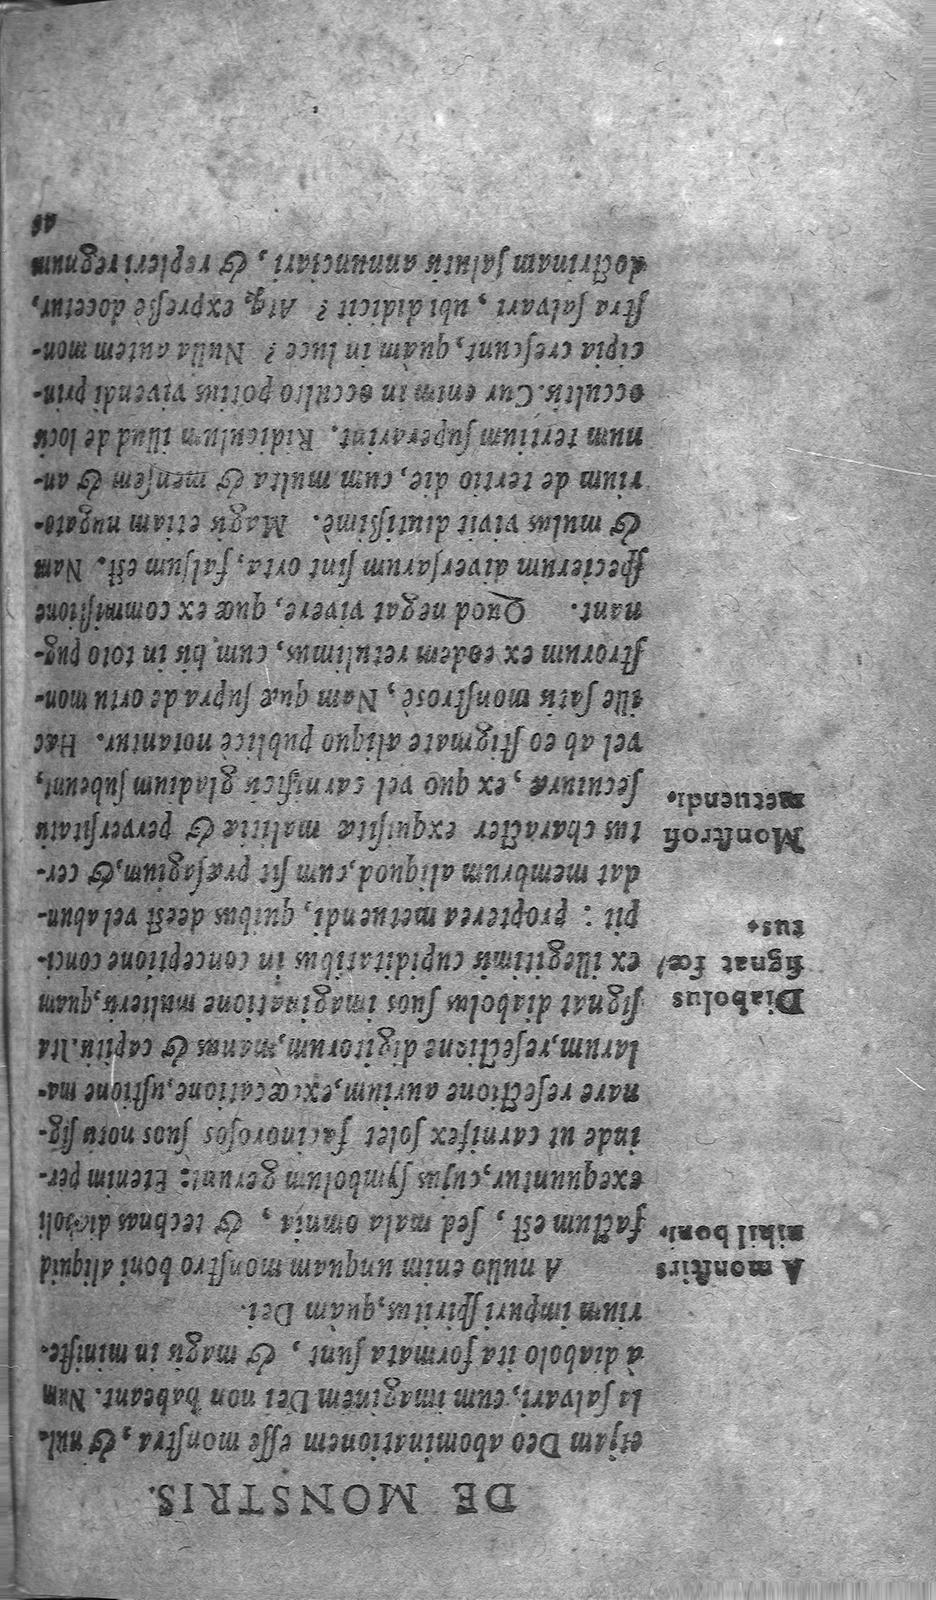 DE MONSTRIS.
etjam Deo abominationem esse monstra, & nul-
la salvari, cum imaginem Dei non habeant. Nam
à diabolo ita formata sunt, & magis in ministe-
rium impuri spiritus, quàm Dei.
A nullo enim unquam monstro boni aliquid
factum est, sed mala omnia, & technas diaboli
exequuntur, cujus symbolum gerunt: Etenim per-
inde ut carnifex solet facinorosos suos notis sig-
nare resectione aurium, excæcatione, ustione ma-
larum, resectione digitorum, manus & capitis. Ita
signat diabolus suos imaginatione mulieris, quam
ex illegitimis cupiditatibus in conceptione conci-
pit: propterea metuendi, quibus deest vel abun-
dat membrum aliquod, cum sit præsagium, & cer-
tus character exquisitæ malitiæ & perversitatis
secuturæ, ex quo vel carnificis gladium subeunt,
vel ab eo stigmate aliquo publice notantur. Hæc
ille satis monstrosè, Nam quæ supra de ortu mon-
strorum ex eodem retulimus, cum his in toto pug-
nant. Quod negat vivere, quæ ex commistione
specierum diversarum sint orta, falsum est. Nam
& mulus vivit diutissimè. Magis etiam nugato-
rium de tertio die, cum multa & mensem & an-
num tertium superarint. Ridiculum illud de locis
occultis. Cur enim in occulto potius vivendi prin-
cipia crescunt, quàm in luce? Nulla autem mon-
stra salvari, ubi didicit? Atq; expressè docetur,
doctrinam salutis annunciari, & repleri regnum
A monstirs
nihil boni.
Diabolus
signat fœ-
tus.
Monstrosi
metuendi.